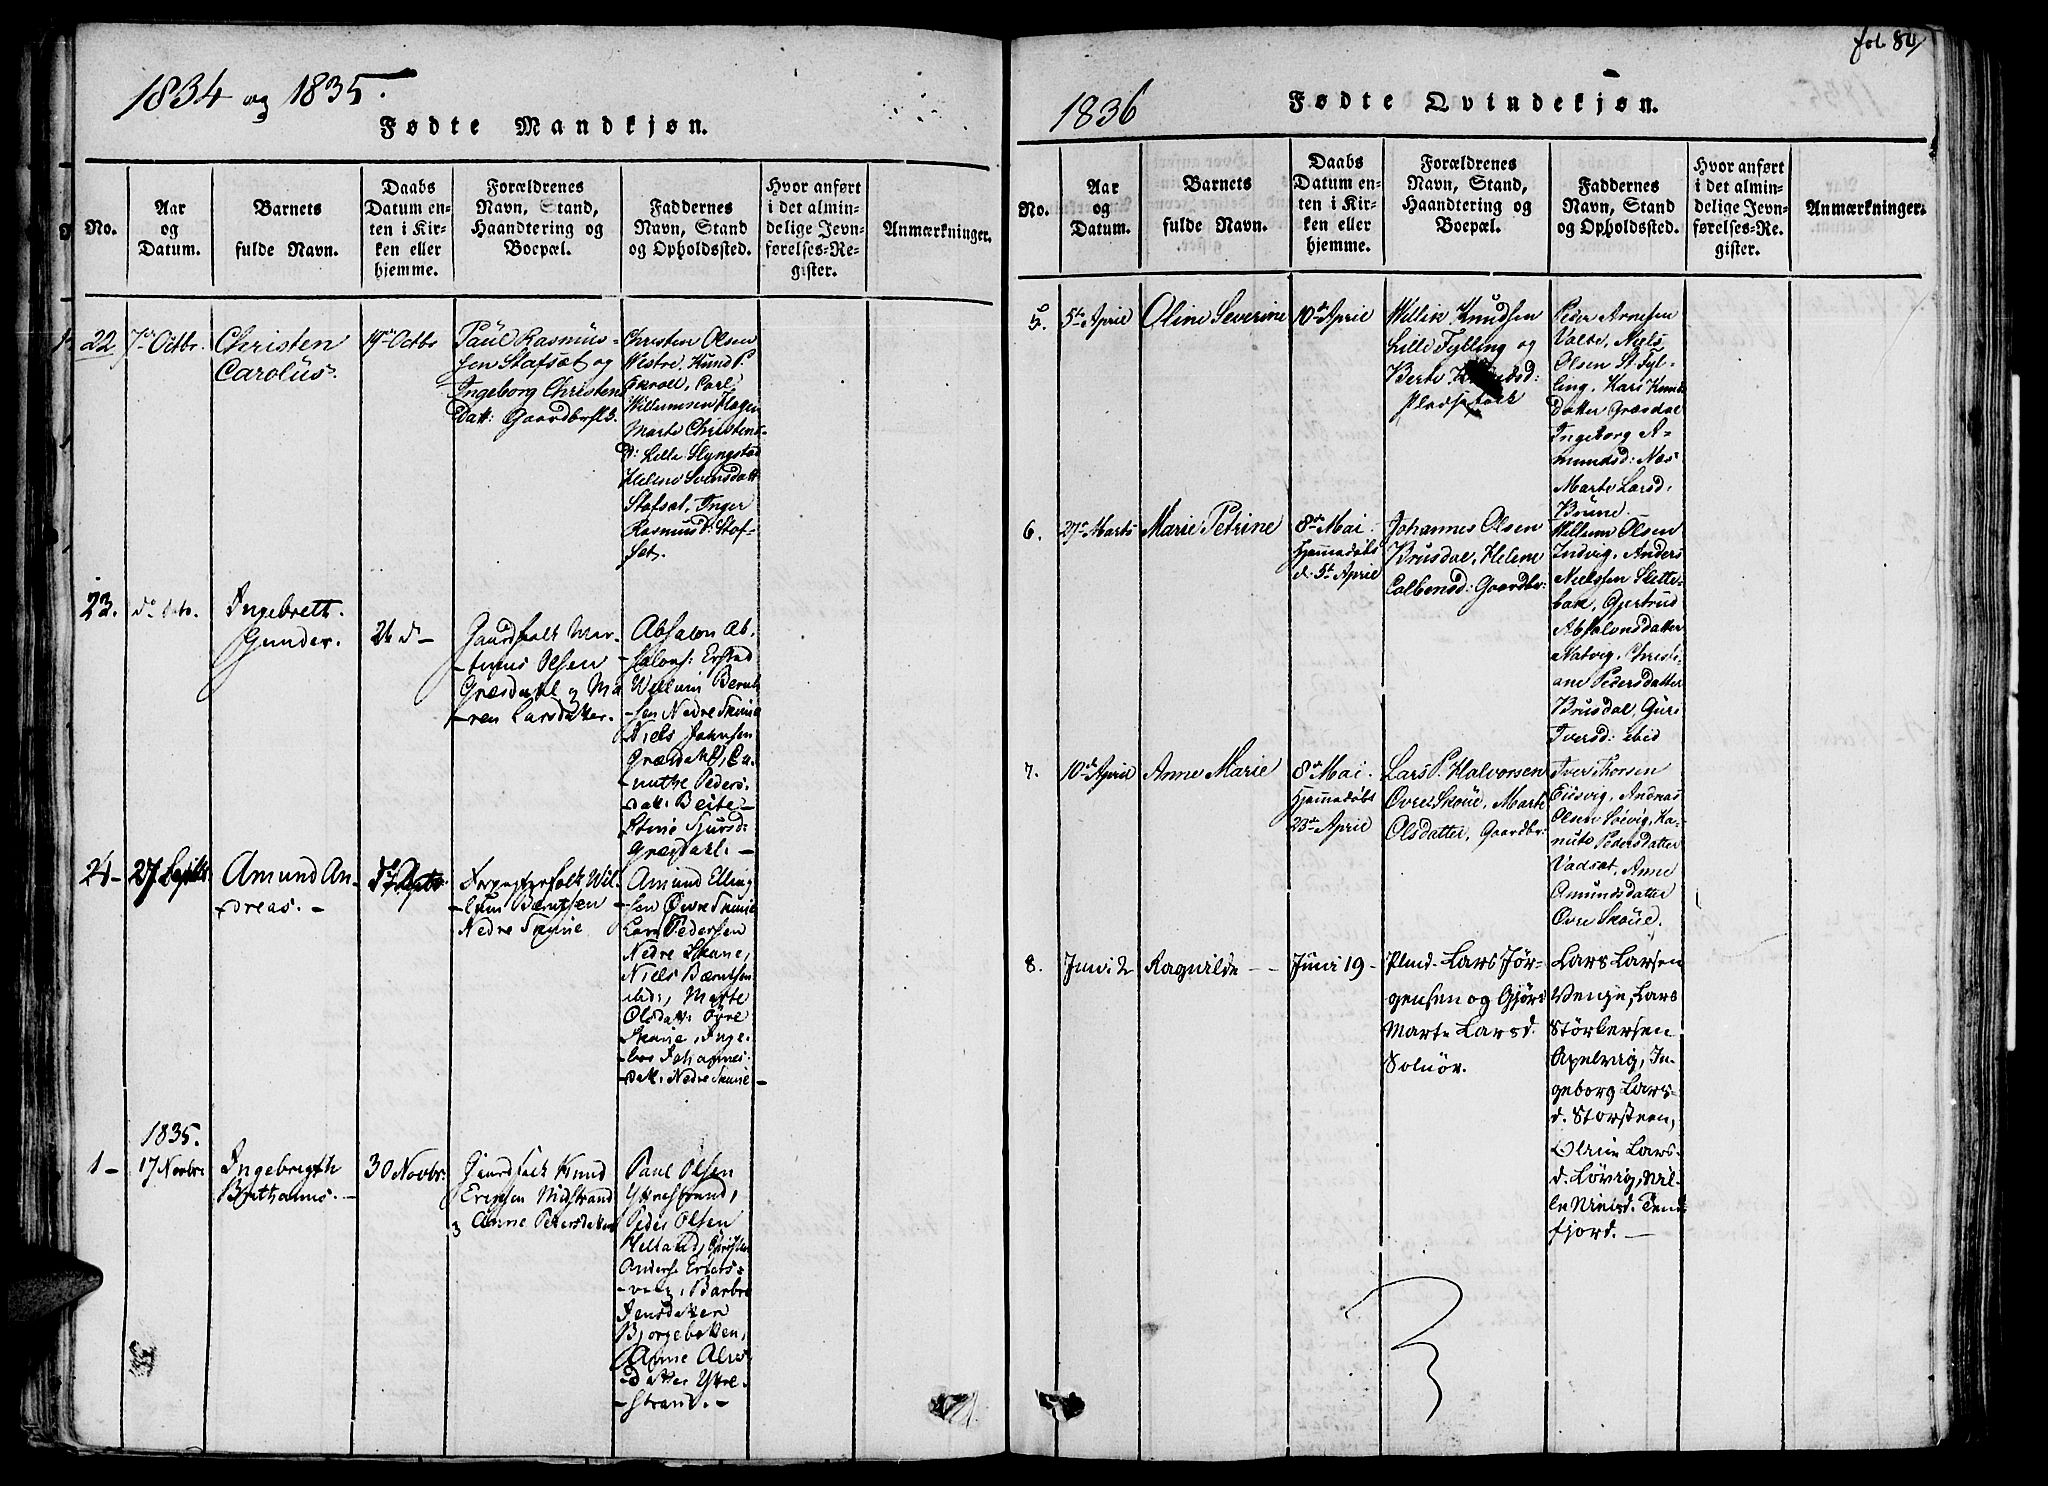 1834 og 1835.
Fødte Mandkjøn.
No.
Aar
og
Datum.
Barnets
fulde Navn.
Daabs
Datum en-
ten i Kir-
ken eller
hjemme.
Forældrenes
Navn, Stand,
Haandtering og
Boepæl.
Faddernes
Navn, Stand
og Opholdssted.
Hvor anført
i det almin-
delige Jevn-
førelses-Re-
gister.
Anmærkninger.
22
7de Octbr.
Christen
Carolüs
19de Octbr
Paul Rasmus-
sen Stafsæt og
Ingeborg Christens
Datt: Gaardbrflk.
Christen Olsen
Westre, Knud P.
Carl
Willumsen Flagen
Marte Christens-
d: Lille Slyngstad
Helene Svensdatt
Stafsæt, Inger
Rasmusd: Staf-
set.
23.
do
Ingebrett
Gunder.
26 d-
Gaardfolk Mar-
-tinus Olsen
Græsdahl og Ma
-ren Larsdatter.
Absalon Ab-
-salons: Erstad
Willum Bernt
-sen Nedre Skuue
Niels Johnsen
Græsdahl, Ca-
-nuthe Peders-
-datt: Beite-
Stine Sjursd:
Græsdahl. -
24-
27 Septbr
Amund An-
-dreas. -
Wil-
-lum Berntsen
Nedre Skuue
Amund Elling
-sen Øvre Skuue
Lars Pedersen
Nedre Skuue,
Niels Berntsen
ibid:, Marte
Olsdatt: Øvre
Skuue, Inge-
-bor Johannes-
-datt: Nedre Skuue -
1835.
1-
17 Novbr
Ingebrigth
Berthanus. -
30 Novbr.
Gaardfolk Knud
Ericksen Midstrand
og Anne Petersdatter
Paul Olsen
Yttrestrand,
Peder Olsen
Helland,
Anders
Barbro
Jensdatter
Bjørgebakken,
Anne
-datter Yttre-
-strand. -
fol. 80
1836
Fødte Qvindekjøn.
No.
Aar
og
Datum.
Barnets
fulde Navn.
Daabs
Datum en-
ten i Kir-
ken eller
hjemme.
Forældrenes
Navn, Stand,
Haandtering og
Boepæl.
Faddernes
Navn, Stand
og Opholdssted.
Hvor anført
i det almin-
delige Jevn-
førelses-Re-
gister.
Anmærkninger.
5.
5te April
Oline Severine
10de April
Willik Knudsen
Lille Fylling og
Berte
Pladsfolk
Peder Arnesen
Valte, Niels
Olsen St: Fyl-
ling, Kari Knuds
Datter Græsdal
Ingeborg A-
mundsd: Næs
Marte Larsd:
Brune.
6.
27de Marts
Marie Petrine
8de Mai
Hjemmedøbt
d: 5te April
Johannes Olsen
Brusdal, Helene
Colbensd: Gaardbr:
Willum Olsen
Indvig, Anders
Nielssen Slette-
bak, Gjertrud
Absalonsdatter
Natvig, Christi-
ane Pedersdatter
Brusdal, Guri
Iversd: ibid
7.
10de April
Anne Marie
8de Mai
Hjemmedøbt
23de April
Lars P. Halvorsen
Øvre Skoue, Marte
Olsdatter, Gaardbr:
Iver Thorsen
Eidsvig, Andreas
Olsen Søevig, Ka-
nute Pedersdatter
Vadsæt, Anne
Amundsdatter
Øvre Skoue.
8.
Juni 2
Ragnilde - -
Juni 19 -
Plmd. Lars Jør-
gensen og Gjør:
Marte Larsd.
Solnør.
Lars Larsen
Venje, Lars
Størkersen
Apelvig, In-
geborg Lars-
d. Storsteen,
Oline Lars-
d. Løvig, Nil-
le Nielsd. Tend
fjord. -